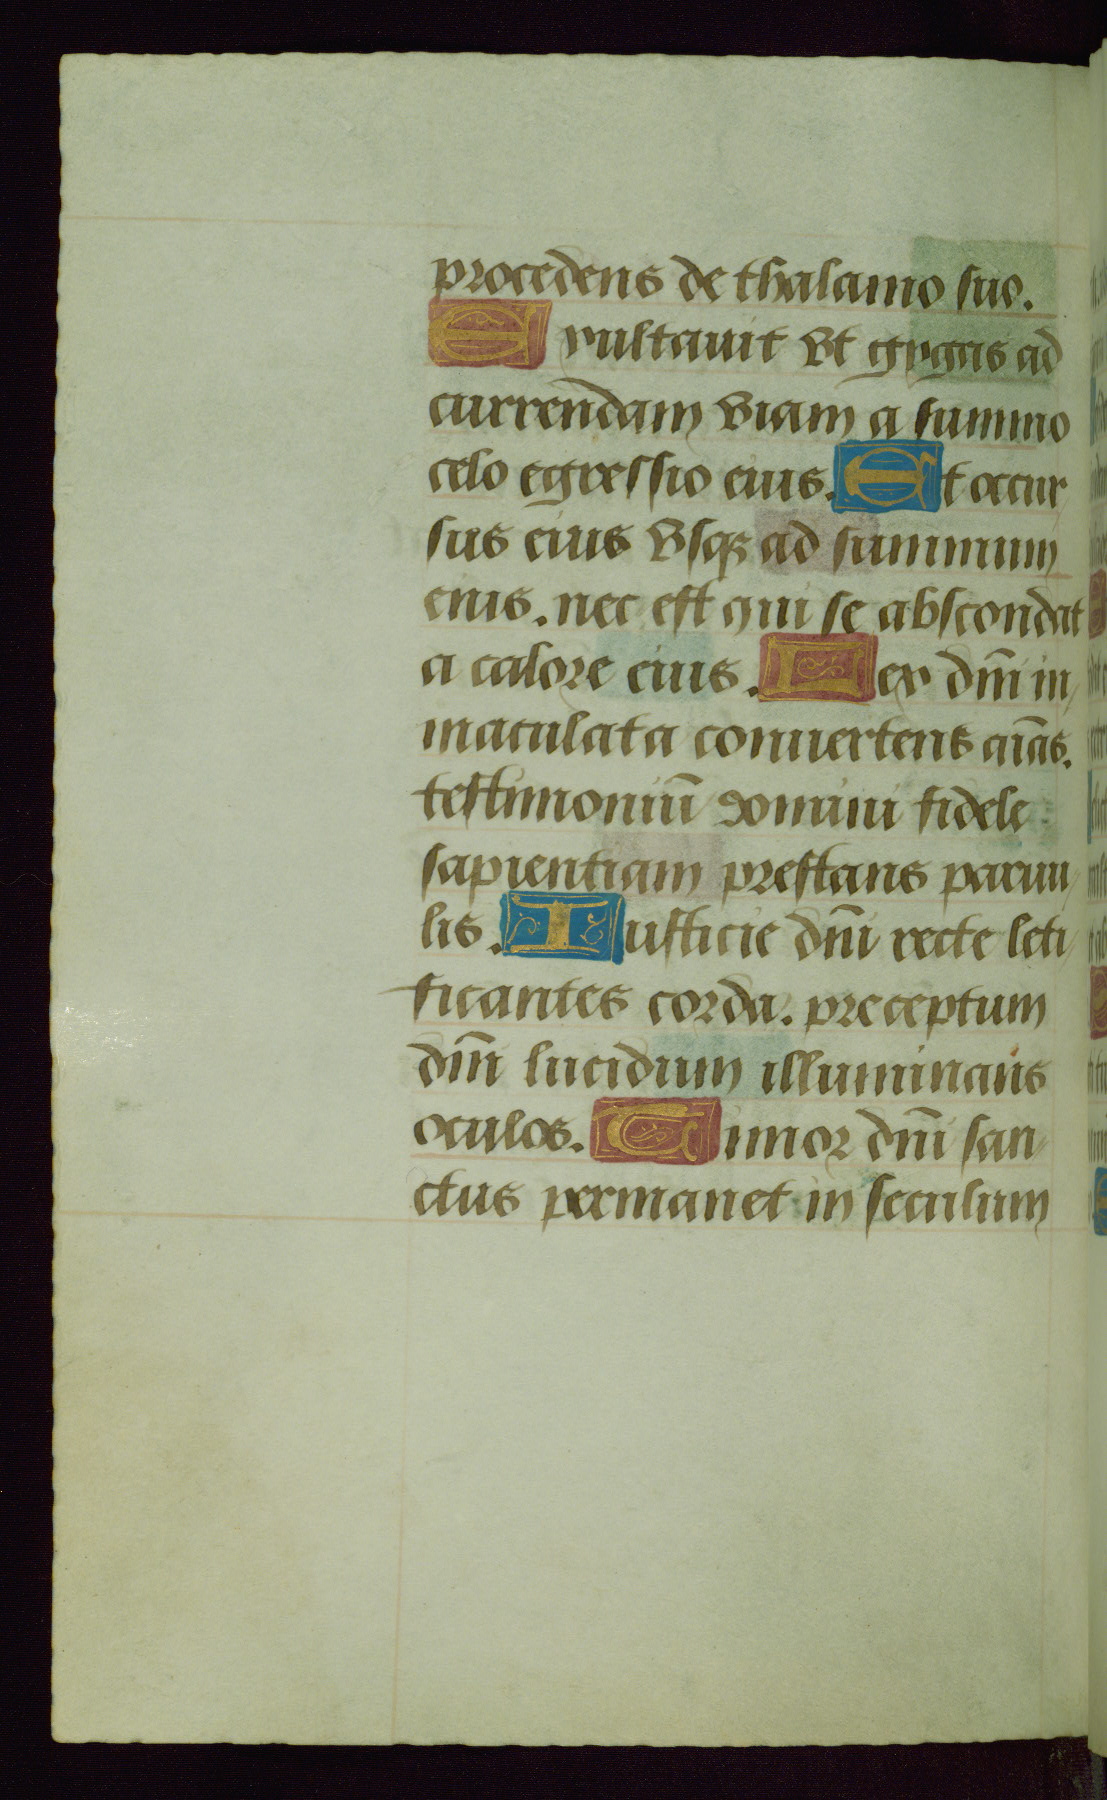 procedens de thalamo suo.
Exultauit vt gygas ad
currendam viam a summo
celo egressio eius. Et occur
sus eius vsqꝫ ad summum
eius. nec est qui se abscondat
a calore eius. Lex dñi in
maculata conuertens aĩas.
testimoniũ domini fidele
sapientiam prestans paruu
lis. Iusticie dñi recte leti
ficantes corda. preceptum
dñi lucidum illuminans
oculos. Timor dñi san
ctus permanet in seculum